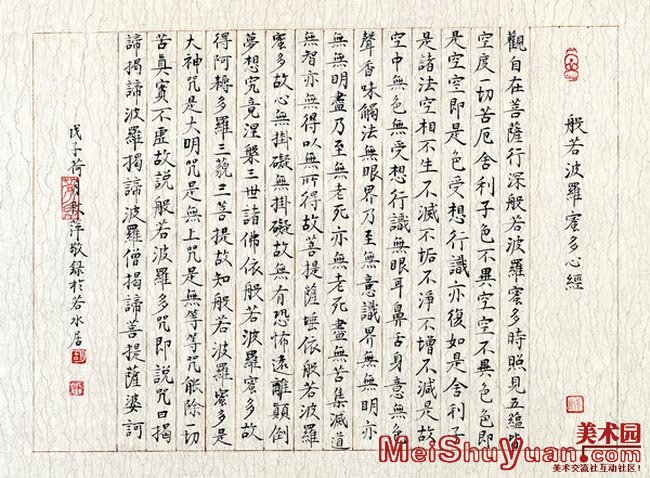 般若波羅蜜多心經
觀自在菩薩行深般若波羅蜜多時照見五蘊皆
空度一切苦厄舍利子色不異空空不異色色即
是空空即是色受想行識亦復如是舍利子
是諸法空相不生不滅不垢不淨不增不減是故
空中無色無受想行識無眼耳鼻舌身意無色
聲香味觸法無眼界乃至無意識界無無明亦
無無明盡乃至無老死亦無老死盡無苦集滅道
無智亦無得以無所得故菩提薩埵依般若波羅
蜜多故心無掛礙無掛礙故無有恐怖遠離顛倒
夢想究竟涅槃三世諸佛依般若波羅蜜多故
得阿耨多羅三藐三菩提故知般若波羅蜜多是
大神咒是大明咒是無上咒是無等等咒能除一切
苦真實不虛故説般若波羅多咒即説咒曰揭
諦揭諦波羅揭諦波羅僧揭諦菩提薩婆訶
戊子荷萍敬錄於若水居
美术园
MeiShuYuan.com
美术交流社互动社区!